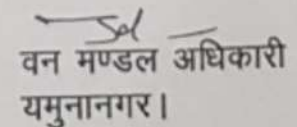 Sd
वन मण्डल अधिकारी
यमुनानगर।